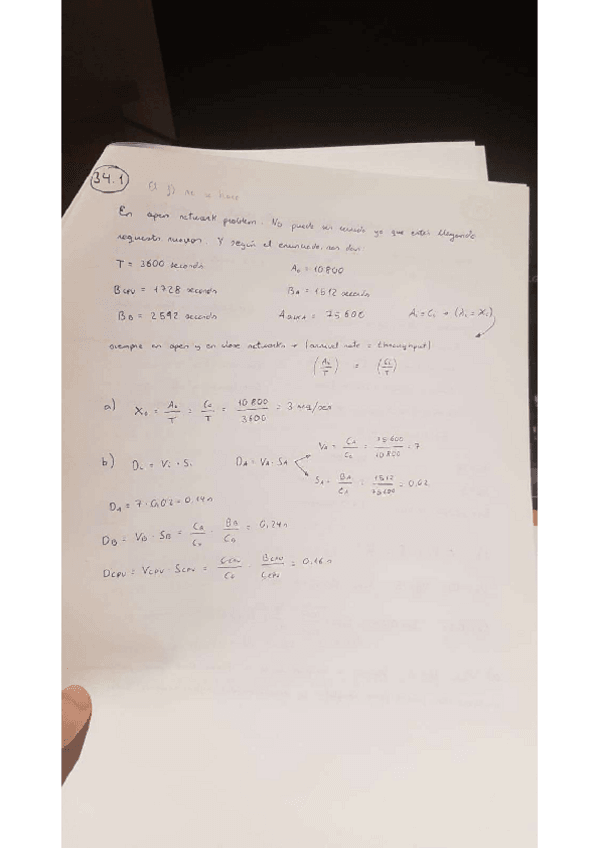 34.1 El f) no se hace
En open network problem. No puede ser cerrado ya que están llegando
requests nuevos. Y según el enunciado, nos dan:
T = 3600 seconds A₀ = 10800
B_CPU = 1728 seconds B_A = 1512 seconds
B_B = 2592 seconds A_DISK A = 75600 A_i = C_i → (λ_i = X_i)
siempre en open y en close networks → (arrival rate = throughput)
(A₀/T) = (C₀/T)
a) X₀ = A₀/T = C₀/T = 10800/3600 = 3 req/sec
b) D_i = V_i · S_i D_A = V_A · S_A V_A = C_A/C₀ = 75600/10800 = 7
S_A = B_A/C_A = 1512/75600 = 0,02
D_A = 7 · 0,02 = 0,14 s
D_B = V_B · S_B = C_B/C₀ · B_B/C_B = 0,24 s
D_CPU = V_CPU · S_CPU = C_CPU/C₀ · B_CPU/C_CPU = 0,16 s